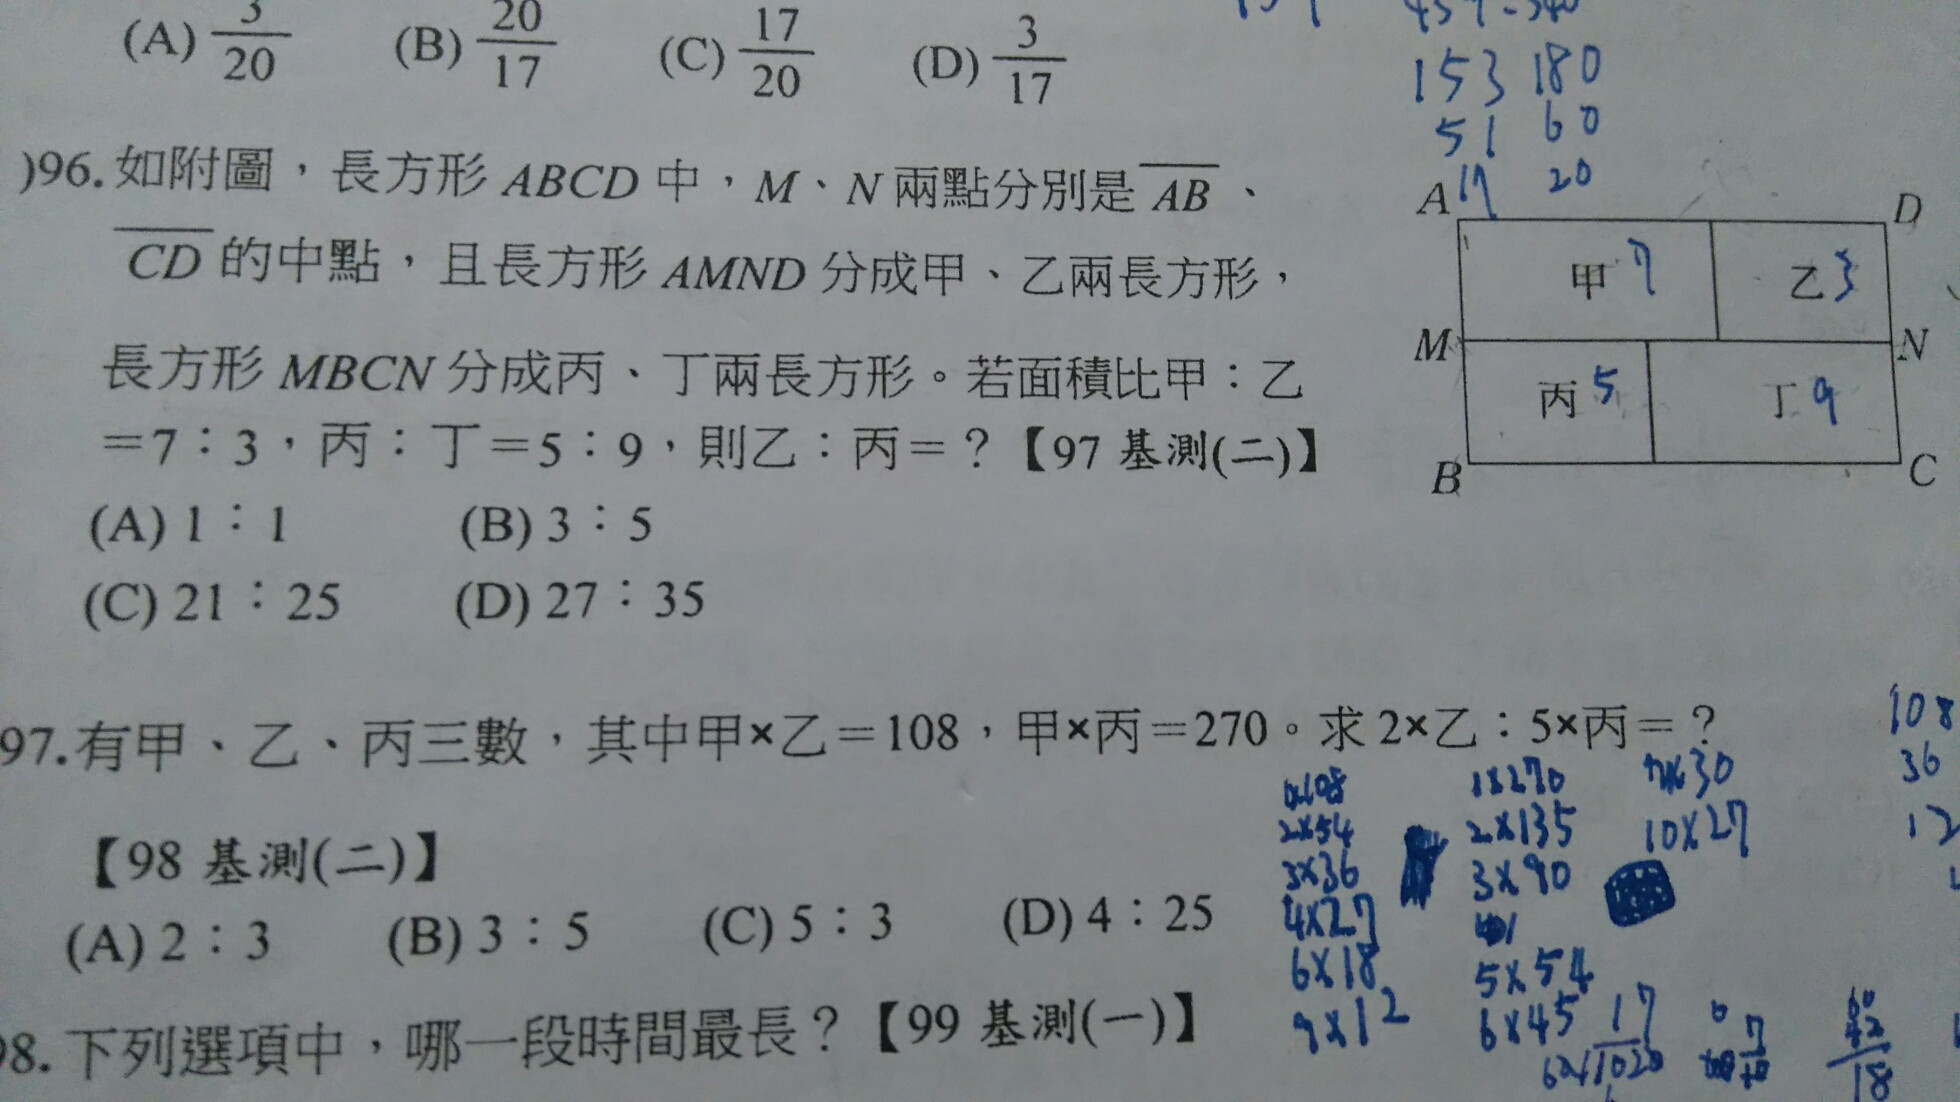 (A) 3/20 (B) 20/17 (C) 17/20 (D) 3/17
153 180
51 60
17 20
)96.如附圖，長方形 ABCD 中，M、N 兩點分別是 AB、
CD 的中點，且長方形 AMND 分成甲、乙兩長方形，
長方形 MBCN 分成丙、丁兩長方形。若面積比甲：乙
＝7：3，丙：丁＝5：9，則乙：丙＝？【97 基測(二)】
(A) 1：1 (B) 3：5
(C) 21：25 (D) 27：35
A D
甲 7 乙 3
M N
丙 5 丁 9
B C
97.有甲、乙、丙三數，其中甲×乙＝108，甲×丙＝270。求 2×乙：5×丙＝？
【98 基測(二)】
(A) 2：3 (B) 3：5 (C) 5：3 (D) 4：25
108
36
12
2×54
3×36
4×27
6×18
9×12
1×270
2×135
3×90
5×54
6×45
10×27
17
18
98.下列選項中，哪一段時間最長？【99 基測(一)】